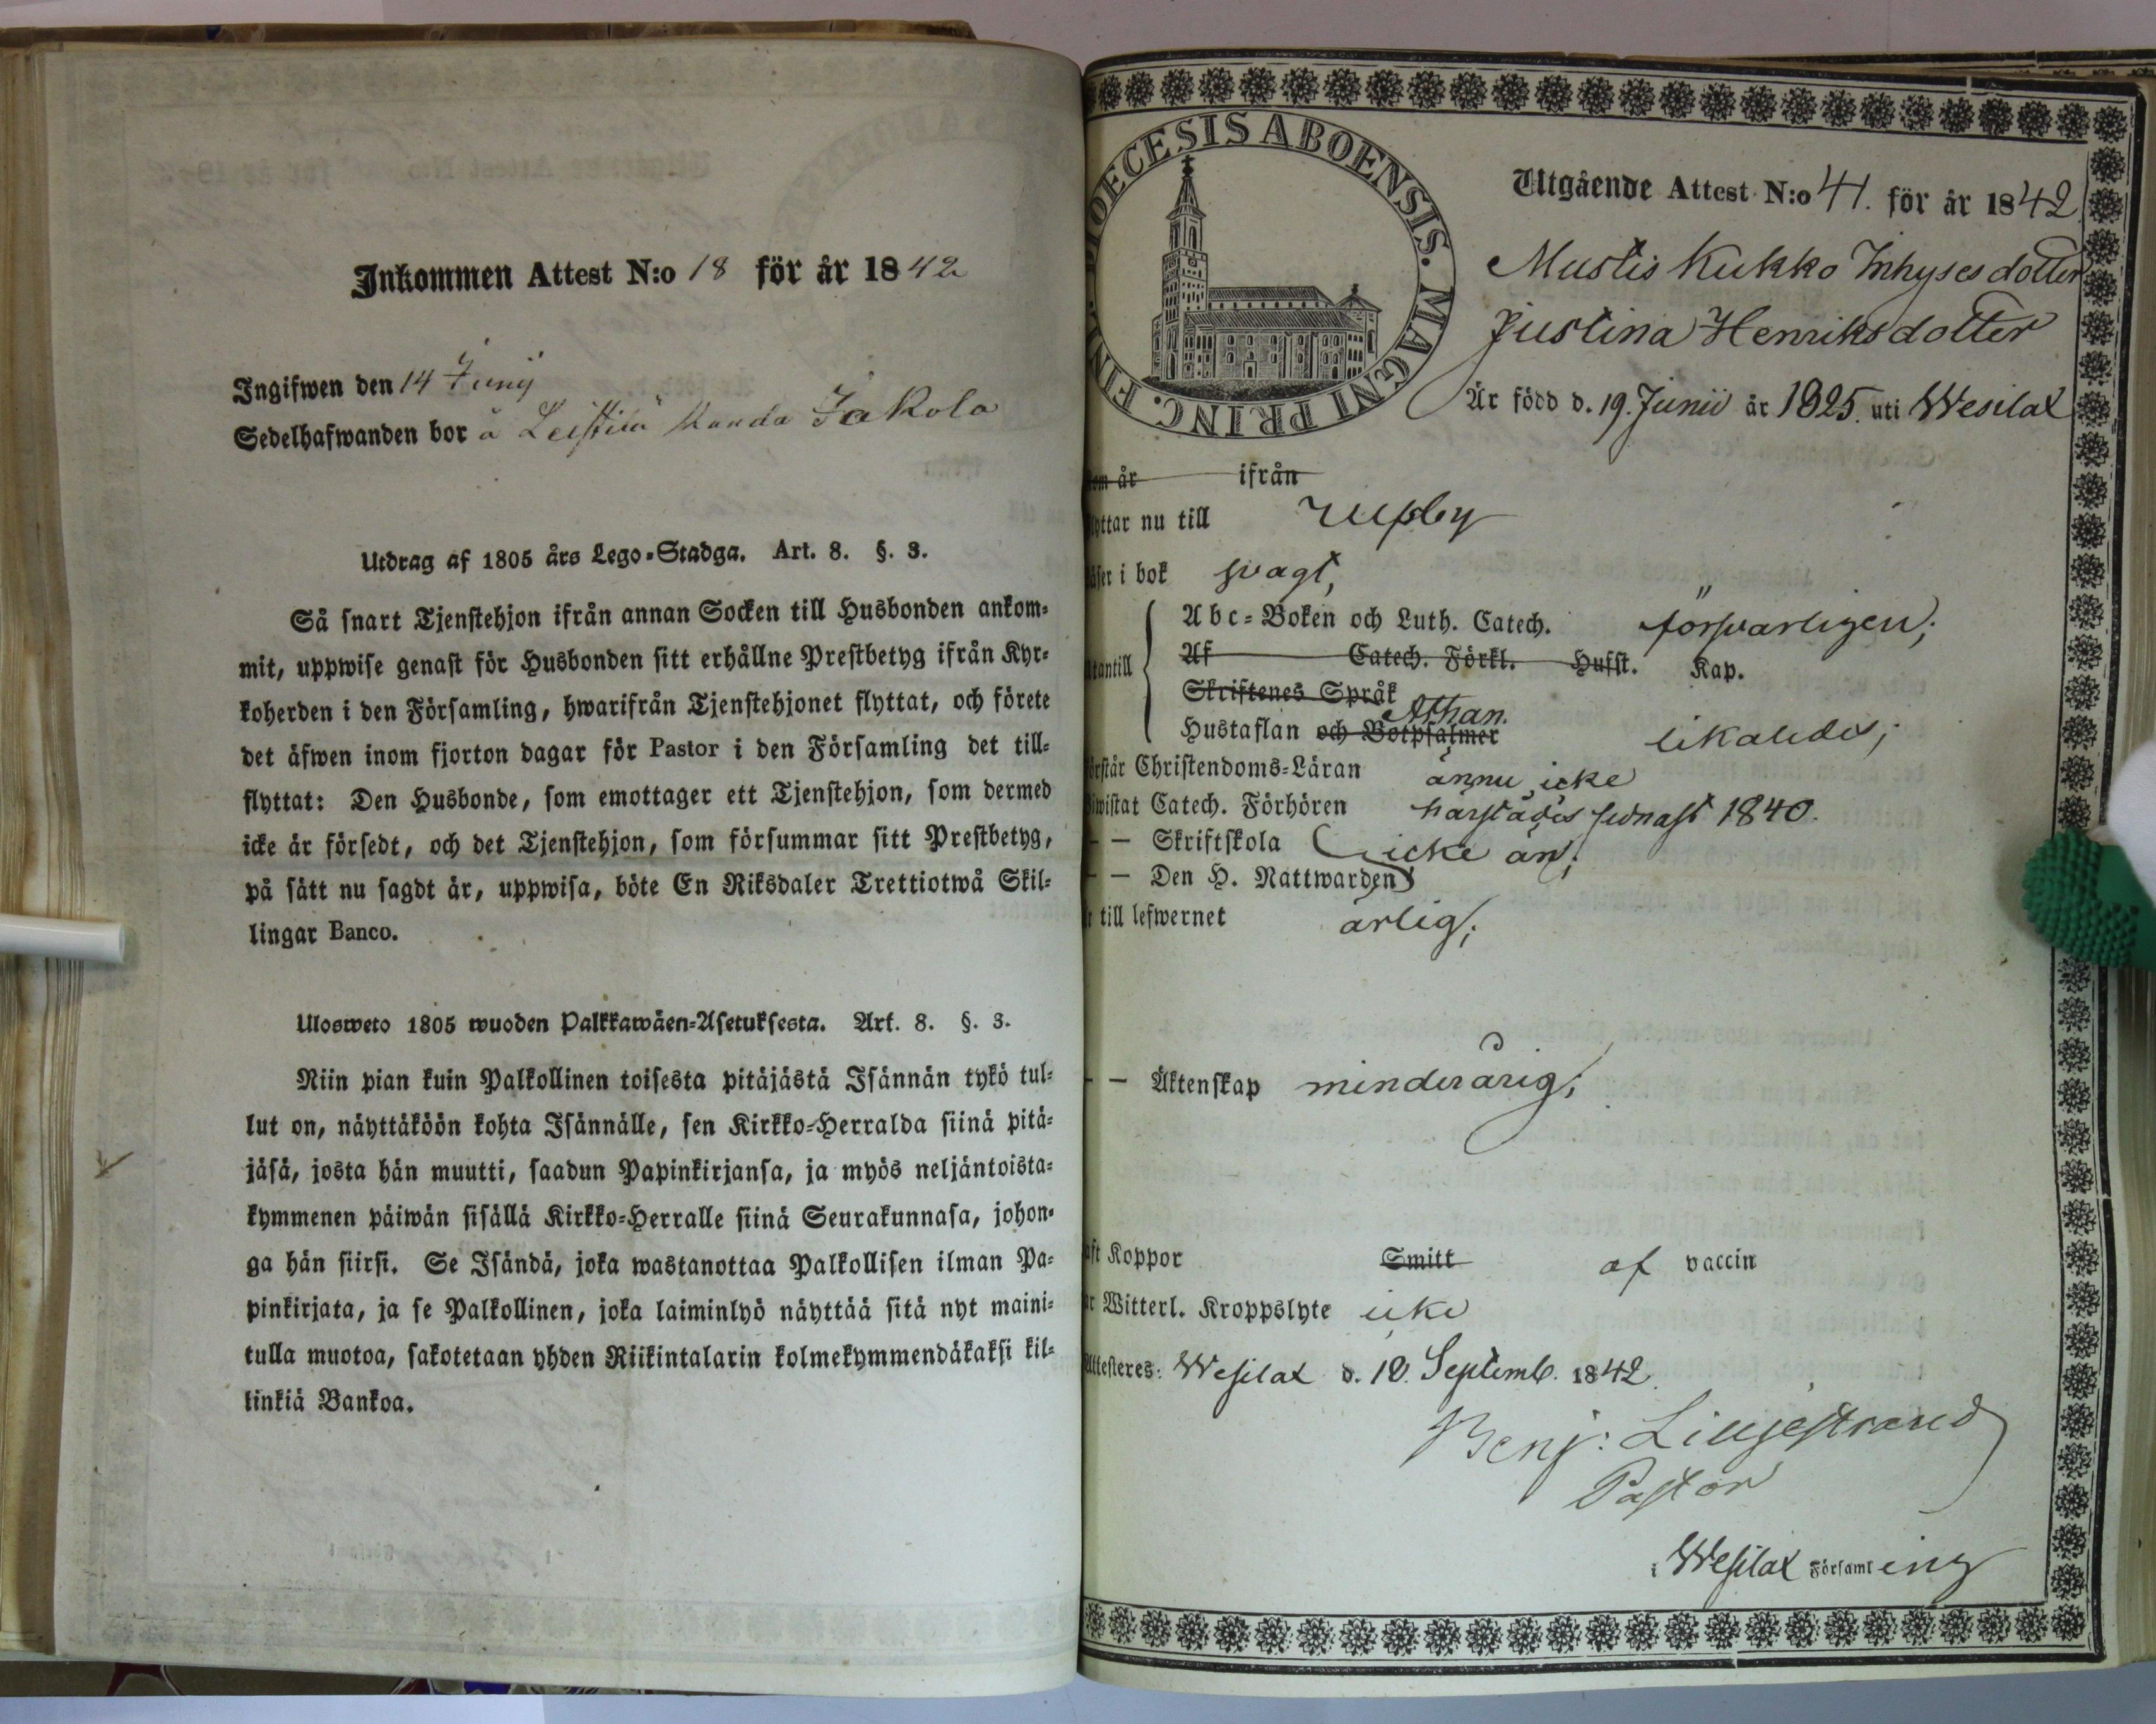 Inkommen Attest N:o 18 för år 1842
Ingifwen den 14 Junij
Sedelhafwanden bor å Leistilä Kanda Jakola
Utdrag af 1805 års Lego-Stadga. Art. 8. §. 3.
Så snart Tjenstehjon ifrån annan Socken till Husbonden ankom-
mit, uppwise genast för Husbonden sitt erhållne Prestbetyg ifrån Kyr-
koherden i den Församling, hwarifrån Tjenstehjonet flyttat, och förete
det äfwen inom fjorton dagar för Pastor i den Församling det till-
flyttat: Den Husbonde, som emottager ett Tjenstehjon, som dermed
icke är försedt, och det Tjenstehjon, som försummar sitt Prestbetyg,
på sätt nu sagdt är, uppwisa, böte En Riksdaler Trettiotwå Skil-
lingar Banco.
Ulosweto 1805 wuoden Palkkawäen-Asetuksesta. Art. 8. §. 3.
Niin pian kuin Palkollinen toisesta pitäjästä Isännän tykö tul-
lut on, näyttäköön kohta Isännälle, sen Kirkko-Herralda siinä pitä-
jäsä, josta hän muutti, saadun Papinkirjansa, ja myös neljäntoista-
kymmenen päiwän sisällä Kirkko-Herralle siinä Seurakunnasa, johon-
ga hän siirsi. Se Isändä, joka wastanottaa Palkollisen ilman Pa-
pinkirjata, ja se Palkollinen, joka laiminlyö näyttää sitä nyt maini-
tulla muotoa, sakotetaan yhden Riikintalarin kolmekymmendäkaksi kil-
linkiä Bankoa.
DIOECESIS ABOENSIS. MAGNI PRINC. FINL.
Utgående Attest N:o 41. för år 1842
Mustis Kukko Inhyses dotter
Justina Henriksdotter
Är född d. 19. Junii år 1825. uti Wesilax
om år ifrån
yttar nu till
äser i bok svagt,
Abc-Boken och Luth. Catech. försvarligen;
utantill Af Catech. Förkl. Hufst. Kap.
Skriftenes Språk
Athan.
Hustaflan och Botpsalmer likaledes;
örstår Christendoms-Läran ännu icke
iwistat Catech. Förhören härstädes sednast 1840.
– – Skriftskola icke än;
– – Den H. Nattwarden
r till lefwernet ärlig;
– – Äktenskap minderårig;
aft Koppor Smitt af vaccin
ar Witterl. Kroppslyte icke
Attesteres: Wesilax d. 10. Septemb. 1842.
Benj: Lilljestrand
Pastor
i Wesilax Församling